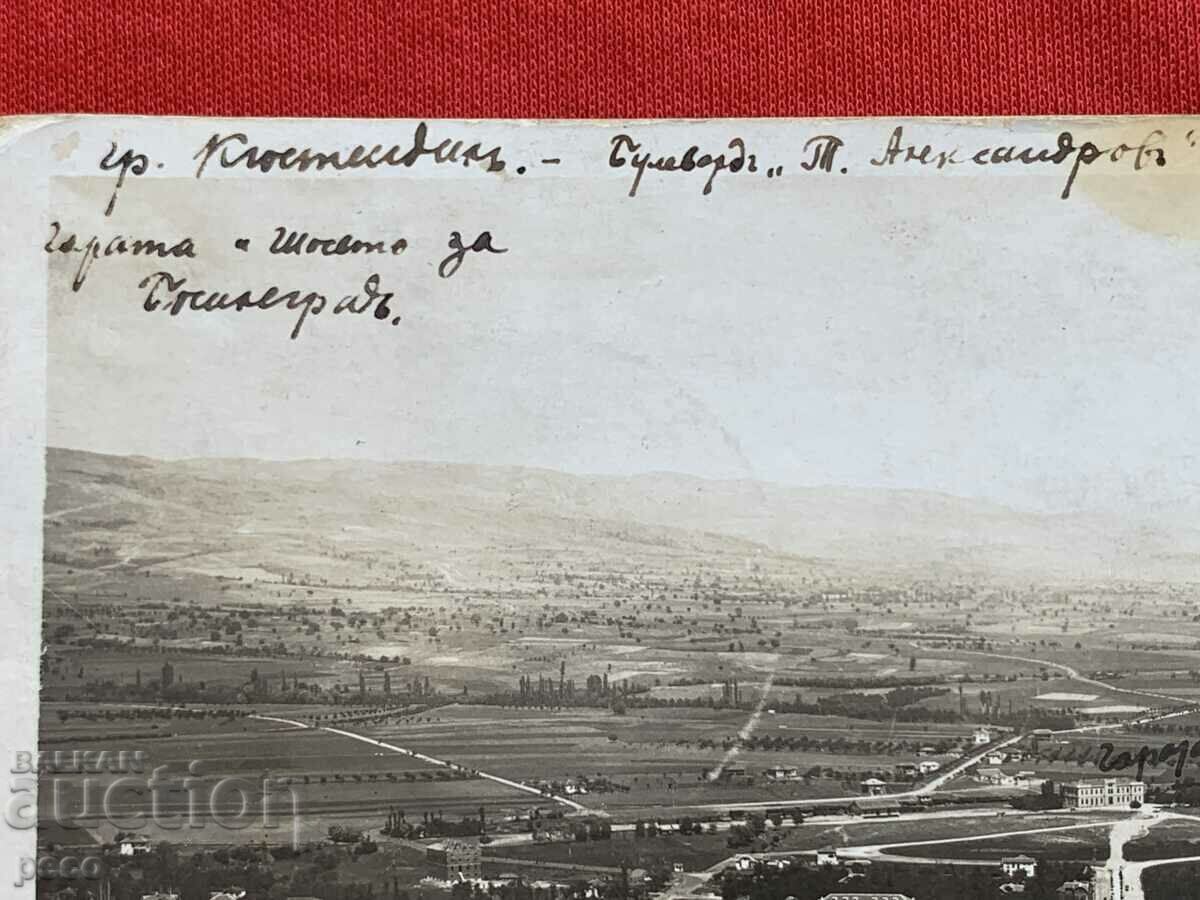 гр. Кюстендилъ. - Булевардъ „Т. Александровъ"
гарата и шосето за
Босилеградъ.
гара
BALKAN
auction
peco